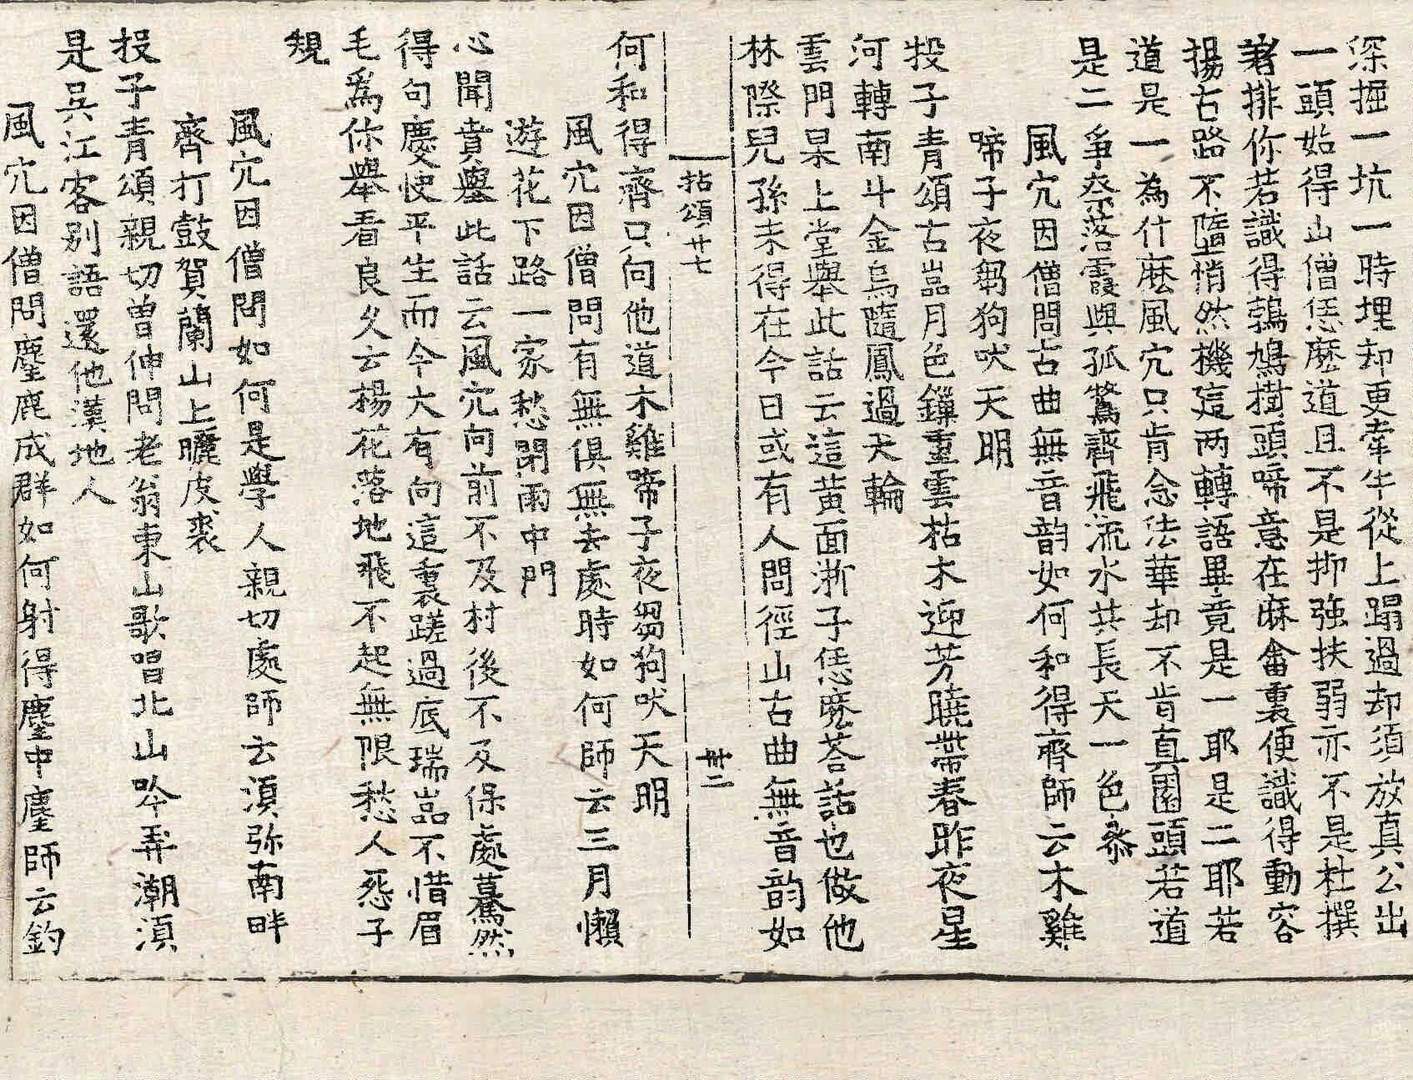 深掘一坑一時埋却更牽牛從上蹋過却須放真公出
一頭始得山僧恁麽道且不是抑強扶弱亦不是杜撰
著排你若識得鵓鳩樹頭啼意在麻畲裏便識得動容
揚古路不墮悄然機這两轉語畢竟是一耶是二耶若
道是一為什麽風穴只肯念法華却不肯真園頭若道
是二爭柰落霞與孤鶩齊飛流水共長天一色參
風穴因僧問古曲無音韵如何和得齊師云木雞
啼子夜芻狗吠天明
投子青頌古嵓月色鏁重雲枯木迎芳曉帶春昨夜星
河轉南斗金烏隨鳳過天輪
雲門杲上堂舉此話云這黃面淅子恁麽荅話也做他
林際兒孫未得在今日或有人問徑山古曲無音韵如
拈頌廿七
卅二
何和得齊只向他道木雞啼子夜芻狗吠天明
風穴因僧問有無俱無去處時如何師云三月懶
遊花下路一家愁閉雨中門
心聞賁舉此話云風穴向前不及村後不及保處驀然
得句慶快平生而今大有向這裏蹉過底瑞嵓不惜眉
毛爲你舉看良久云楊花落地飛不起無限愁人怨子
規
風穴因僧問如何是學人親切處師云湏弥南畔
齊打鼓賀蘭山上曬皮裘
投子青頌親切曾伸問老翁東山歌唱北山吟弄潮湏
是吳江客別語還他漢地人
風穴因僧問麈鹿成群如何射得麈中麈師云釣